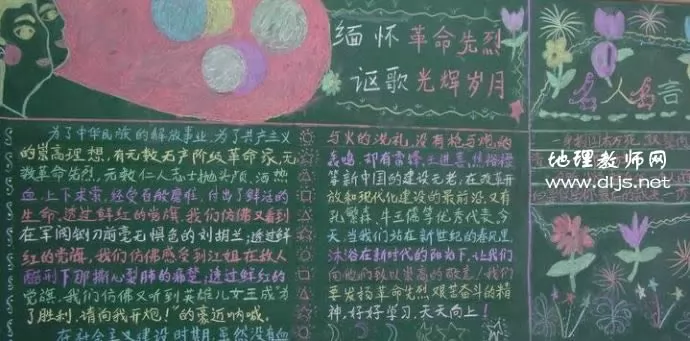 缅怀革命先烈
讴歌光辉岁月
为了中华民族的解放事业,为了共产主义
的崇高理想,有无数无产阶级革命家,无
数革命先烈,无数仁人志士抛头颅,洒热
血,上下求索,经受百般磨难,付出了鲜活的
生命。透过鲜红的党旗,我们仿佛又看到
在军阀铡刀前毫无惧色的刘胡兰;透过鲜
红的党旗,我们仿佛感受到江姐在敌人
酷刑下那撕心裂肺的痛楚;透过鲜红的
党旗,我们仿佛又听到英雄儿女王成"为
了胜利,请向我开炮!"的豪迈呐喊。
在社会主义建设时期,虽然没有血
与火的洗礼,没有枪与炮的
轰鸣,却有雷锋,王进喜,焦裕禄
等新中国的建设元老;在改革开
放和现代化建设的最前沿,又有
孔繁森,牛玉儒等优秀代表,今
天,当我们站在新世纪的春风里
沐浴在新时代的阳光下,让我们
向他们致以崇高的敬意!我们
要发扬革命先烈艰苦奋斗的精
神,好好学习,天天向上!
名人名言
地理教师网
www.dljs.net